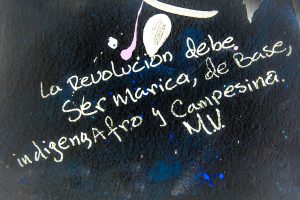 La Revolución debe
Ser Marica, de Base,
indigenAfro y Campesina.
M.V.